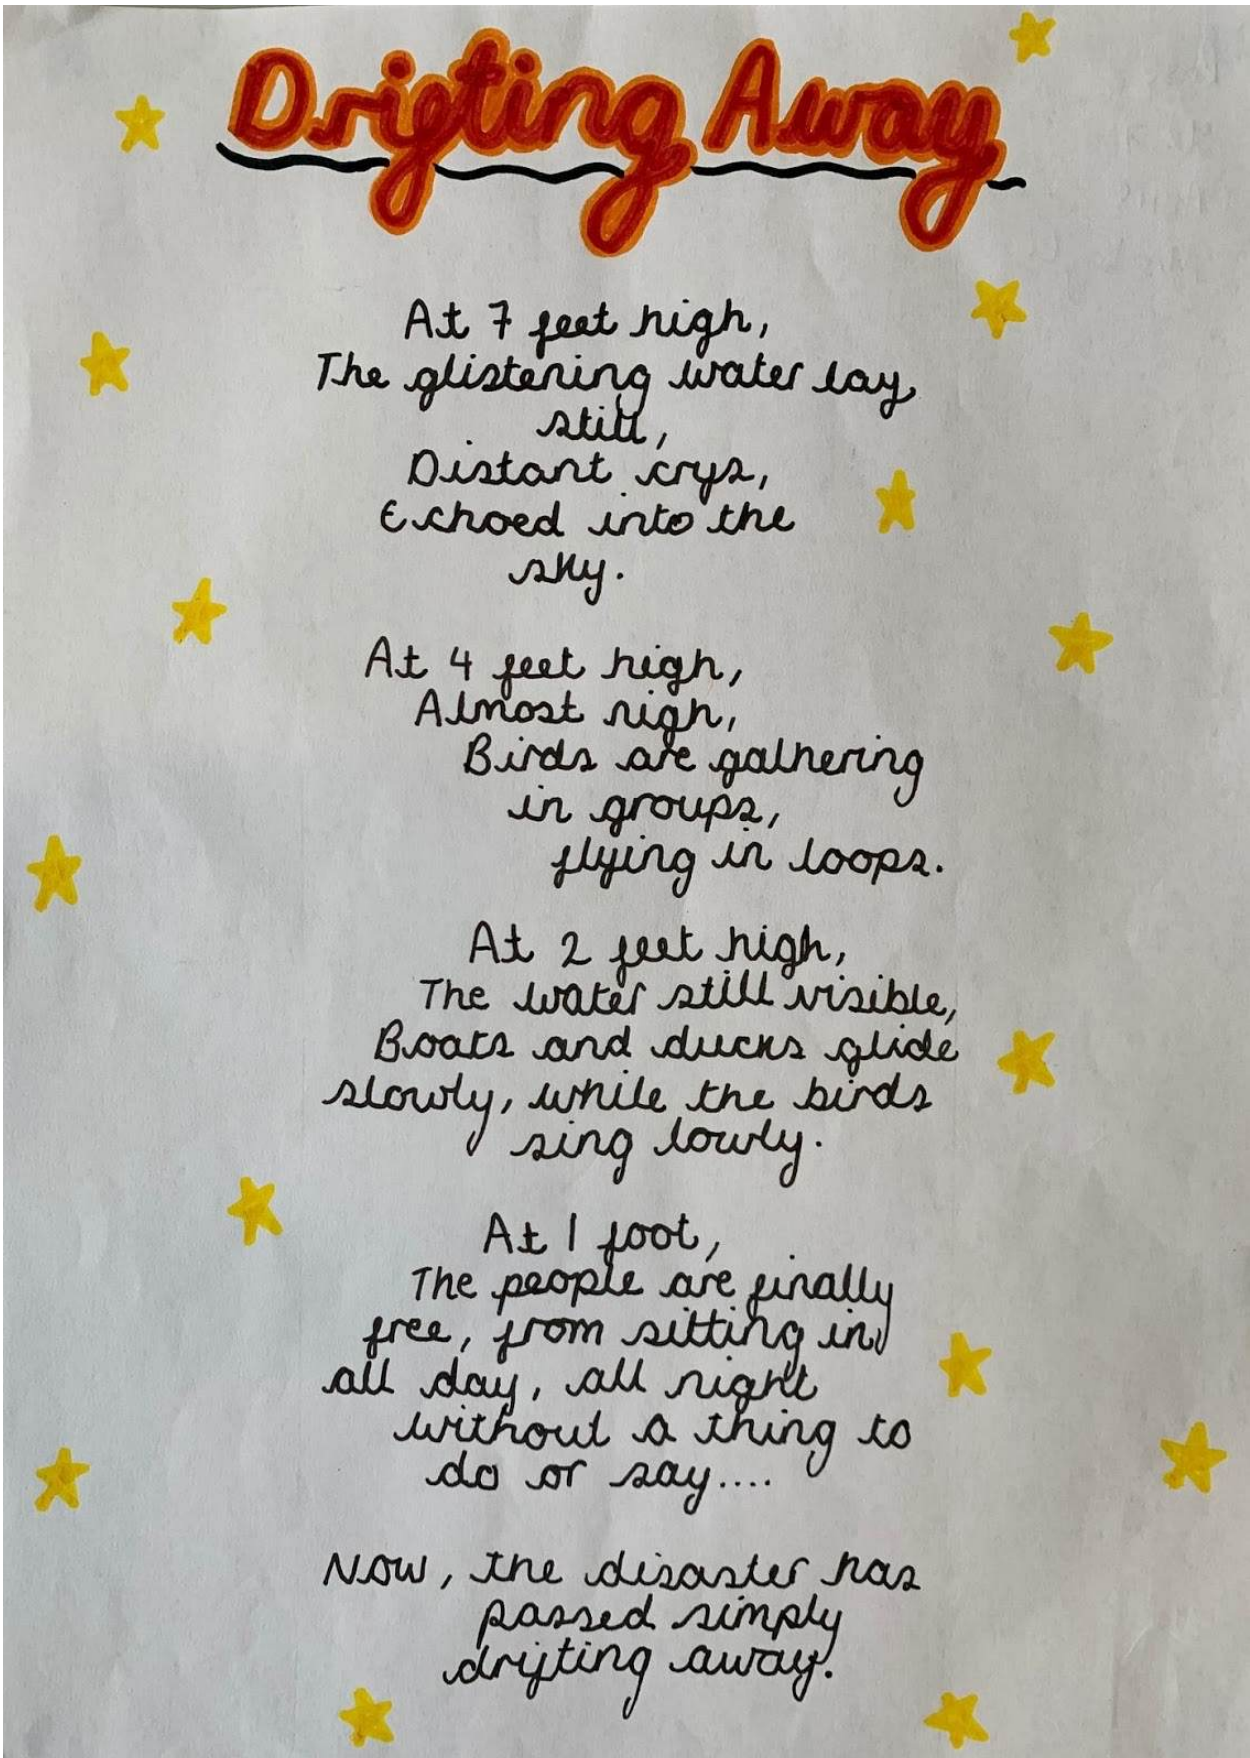 Drifting Away
At 7 feet high,
The glistening water lay
still,
Distant crys,
Echoed into the
sky.
At 4 feet high,
Almost nigh,
Birds are gathering
in groups,
flying in loops.
At 2 feet high,
The water still visible,
Boats and ducks glide
slowly, while the birds
sing lowly.
At 1 foot,
The people are finally
free, from sitting in
all day, all night
without a thing to
do or say....
Now, the disaster has
passed simply
drifting away.